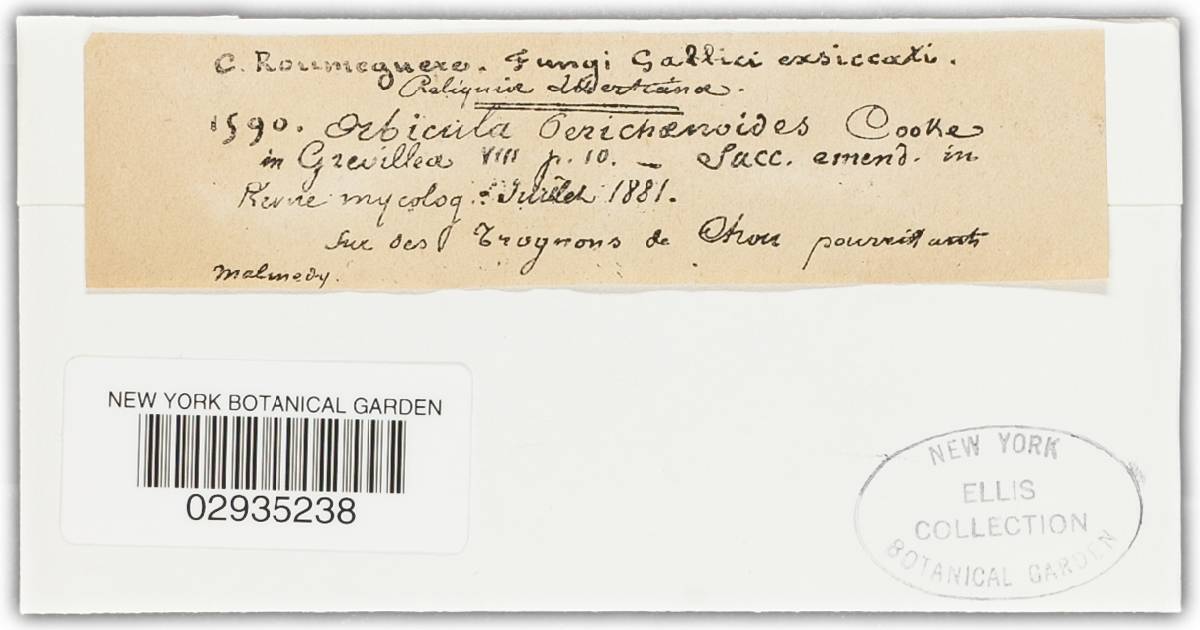 C. Roumeguere. Fungi Gallici exsiccati.
Reliquiæ Libertianæ.
1590. Orbicula Perichænoides Cooke
in Grevillea VIII p. 10. — Sacc. emend. in
Revue mycolog. Juillet 1881.
Sur des Trognons de Chou pourrissants
Malmedy.
NEW YORK BOTANICAL GARDEN
02935238
NEW YORK
ELLIS
COLLECTION
BOTANICAL GARDEN